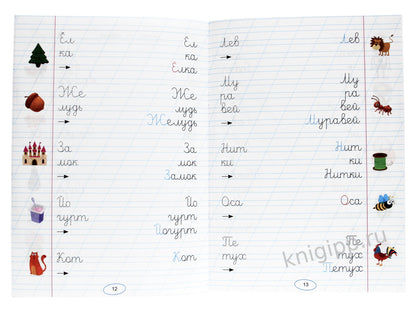 Ел Ел
ка ка
Елка
Же Же
лудь лудь
Желудь
За За
мок мок
Замок
Йо Йо
гурт гурт
Йогурт
Кот Кот
12
Лев Лев
Му Му
ра ра
вей вей
Муравей
Нит Нит
ки ки
Нитки
Оса Оса
Пе Пе
тух тух
Петух
13
knigipp.ru